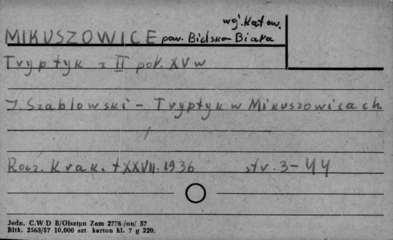 woj. Katow.
MIKUSZOWICE pow. Bielsko-Biała
Tryptyk z II poł. XV w
J. Szablowski - Tryptyk w Mikuszowicach
Rocz. Krak. t XXVII. 1936 str. 3-44
Jedn. C.W D B/Olsztyn Zam 2776 /on/ 57
Bibk. 2563/57 10.000 szt karton kl. 7 g 220.